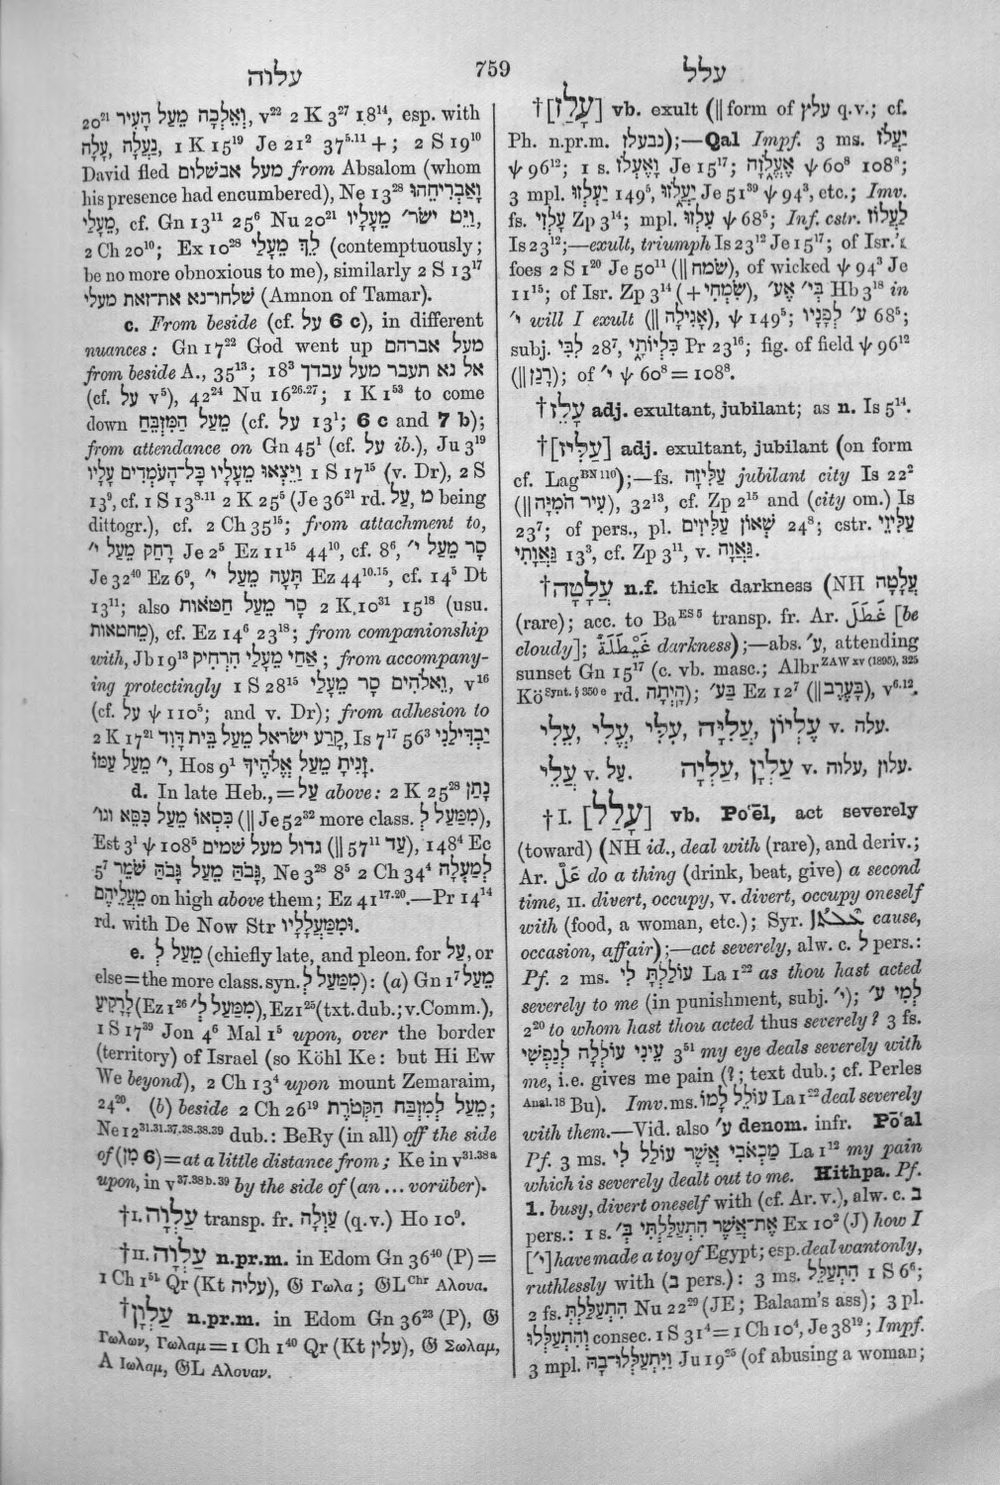 עלוה
759
עלל
20²¹ וָאֵלְכָה מֵעַל הָעִיר, v²² 2 K 3²⁷ 18¹⁴, esp. with
נַעֲלָה, עָלָה, 1 K 15¹⁹ Je 21² 37⁵·¹¹ +; 2 S 19¹⁰
David fled מעל אבשׁלום from Absalom (whom
his presence had encumbered), Ne 13²⁸ וָאַבְרִיחֵהוּ
מֵעָלָי, cf. Gn 13¹¹ 25⁶ Nu 20²¹ וַיֵּט ישׂר׳ מֵעָלָיו,
2 Ch 20¹⁰; Ex 10²⁸ לֵךְ מֵעָלַי (contemptuously;
be no more obnoxious to me), similarly 2 S 13¹⁷
שׁלחו־נא את־זאת מעלי (Amnon of Tamar).
c. From beside (cf. עַל 6 c), in different
nuances: Gn 17²² God went up מעל אברהם
from beside A., 35¹³; 18³ אל נא תעבר מעל עבדך
(cf. עַל v⁵), 42²⁴ Nu 16²⁶·²⁷; 1 K 1⁵³ to come
down מֵעַל הַמִּזְבֵּחַ (cf. עַל 13¹; 6 c and 7 b);
from attendance on Gn 45¹ (cf. עַל ib.), Ju 3¹⁹
וַיֵּצְאוּ מֵעָלָיו כָּל־הָעֹמְדִים עָלָיו 1 S 17¹⁵ (v. Dr), 2 S
13⁹, cf. 1 S 13⁸·¹¹ 2 K 25⁵ (Je 36²¹ rd. עַל, מ being
dittogr.), cf. 2 Ch 35¹⁵; from attachment to,
סָר מֵעַל י׳, רָחַק מֵעַל י׳ Je 2⁵ Ez 11¹⁵ 44¹⁰, cf. 8⁶,
Je 32⁴⁰ Ez 6⁹, תָּעָה מֵעַל י׳ Ez 44¹⁰·¹⁵, cf. 14⁵ Dt
13¹¹; also סָר מֵעַל חַטֹּאות 2 K 10³¹ 15¹⁸ (usu.
מחטאות), cf. Ez 14⁶ 23¹⁸; from companionship
with, Jb 19¹³ אַחַי מֵעָלַי הִרְחִיק; from accompany-
ing protectingly 1 S 28¹⁵ וֵאלֹהִים סָר מֵעָלַי, v¹⁶
(cf. עַל ψ 110⁵; and v. Dr); from adhesion to
2 K 17²¹ קָרַע ישׂראל מֵעַל בֵּית דָּוִד, Is 7¹⁷ 56³ יַבְדִּילַנִי
י׳ מֵעַל עַמּוֹ, Hos 9¹ זָנִיתָ מֵעַל אֱלֹהֶיךָ.
d. In late Heb., = עַל above: 2 K 25²⁸ נָתַן
כִּסְאוֹ מֵעַל כִּסֵּא וגו׳ (‖ Je 52³² more class. מִמַּעַל לְ),
Est 3¹ ψ 108⁵ גדול מעל שׁמים (‖ 57¹¹ עַד), 148⁴ Ec
5⁷ גָּבֹהַּ מֵעַל גָּבֹהַּ שֹׁמֵר, Ne 3²⁸ 8⁵ 2 Ch 34⁴ לְמַעְלָה
מֵעֲלֵיהֶם on high above them; Ez 41¹⁷·²⁰.—Pr 14¹⁴
rd. with De Now Str וּמִמַּעֲלָלָיו.
e. מֵעַל לְ (chiefly late, and pleon. for עַל, or
else = the more class. syn. מִמַּעַל לְ): (a) Gn 1⁷ מֵעַל
לָרָקִיעַ (Ez 1²⁶ מִמַּעַל לְ׳), Ez 1²⁵ (txt. dub.; v. Comm.),
1 S 17³⁹ Jon 4⁶ Mal 1⁵ upon, over the border
(territory) of Israel (so Köhl Ke: but Hi Ew
We beyond), 2 Ch 13⁴ upon mount Zemaraim,
24²⁰. (b) beside 2 Ch 26¹⁹ מֵעַל לְמִזְבַּח הַקְּטֹרֶת;
Ne 12³¹·³¹·³⁷·³⁸·³⁸·³⁹ dub.: BeRy (in all) off the side
of (מִן 6) = at a little distance from; Ke in v³¹·³⁸ᵃ
upon, in v³⁷·³⁸ᵇ·³⁹ by the side of (an ... vorüber).
†I. עַלְוָה transp. fr. עַוְלָה (q.v.) Ho 10⁹.
†II. עַלְוָה n.pr.m. in Edom Gn 36⁴⁰ (P) =
1 Ch 1⁵¹ Qr (Kt עליה), 𝔊 Γωλα; 𝔊L Chr Αλουα.
†עַלְוָן n.pr.m. in Edom Gn 36²³ (P), 𝔊
Γωλων, Γωλαμ = 1 Ch 1⁴⁰ Qr (Kt עלין), 𝔊 Σωλαμ,
A Ιωλαμ, 𝔊L Αλουαν.
†[עָלַז] vb. exult (‖ form of עלץ q.v.; cf.
Ph. n.pr.m. נבעלז);—Qal Impf. 3 ms. יַעֲלֹז
ψ 96¹²; 1 s. וָאֶעְלֹז Je 15¹⁷; אֶעֱלֹזָה ψ 60⁸ 108⁸;
3 mpl. יַעְלְזוּ 149⁵, יַעֲלֹזוּ Je 51³⁹ ψ 94³, etc.; Imv.
fs. עָלְזִי Zp 3¹⁴; mpl. עִלְזוּ ψ 68⁵; Inf. cstr. לַעֲלוֹז
Is 23¹²;—exult, triumph Is 23¹² Je 15¹⁷; of Isr.'s
foes 2 S 1²⁰ Je 50¹¹ (‖ שׂמח), of wicked ψ 94³ Je
11¹⁵; of Isr. Zp 3¹⁴ (+ שִׂמְחִי), בַּי׳ אֶע׳ Hb 3¹⁸ in
י׳ will I exult (‖ אָגִילָה), ψ 149⁵; ע׳ לְפָנָיו 68⁵;
subj. לִבִּי 28⁷, כִּלְיוֹתָי Pr 23¹⁶; fig. of field ψ 96¹²
(‖ רִנֵּן); of י׳ ψ 60⁸ = 108⁸.
†עָלֵז adj. exultant, jubilant; as n. Is 5¹⁴.
†[עַלִּיז] adj. exultant, jubilant (on form
cf. Lag BN 110);—fs. עַלִּיזָה jubilant city Is 22²
(‖ עִיר הֹמִיָּה), 32¹³, cf. Zp 2¹⁵ and (city om.) Is
23⁷; of pers., pl. שְׁאוֹן עַלִּיזִים 24⁸; cstr. עַלִּיזֵי
גַּאֲוָתִי 13³, cf. Zp 3¹¹, v. גַּאֲוָה.
†עֲלָטָה n.f. thick darkness (NH עֲלָטָה
(rare); acc. to Ba ES 5 transp. fr. Ar. غَطَلَ [be
cloudy]; غَيْطَلَة darkness);—abs. ע׳, attending
sunset Gn 15¹⁷ (c. vb. masc.; Albr ZAW xv (1895), 325
Kö Synt. § 350 e rd. הָיְתָה); בַּע׳ Ez 12⁷ (‖ בָּעֶרֶב), v⁶·¹².
עֵלִי, עֱלִי, עִלִּי, עֲלִיָּה, עֶלְיוֹן v. עלה.
עֲלֵי v. עַל. עַלְיָה, עַלְיָן v. עלוה, עלון.
†I. [עָלַל] vb. Po'ēl, act severely
(toward) (NH id., deal with (rare), and deriv.;
Ar. عَلَّ do a thing (drink, beat, give) a second
time, II. divert, occupy, V. divert, occupy oneself
with (food, a woman, etc.); Syr. ܥܠܬܐ cause,
occasion, affair);—act severely, alw. c. לְ pers.:
Pf. 2 ms. עוֹלַלְתָּ לִי La 1²² as thou hast acted
severely to me (in punishment, subj. י׳); לְמִי ע׳
2²⁰ to whom hast thou acted thus severely? 3 fs.
עֵינִי עוֹלְלָה לְנַפְשִׁי 3⁵¹ my eye deals severely with
me, i.e. gives me pain (?; text dub.; cf. Perles
Anal. 18 Bu). Imv. ms. עוֹלֵל לָמוֹ La 1²² deal severely
with them.—Vid. also ע׳ denom. infr. Pō'al
Pf. 3 ms. מַכְאֹבִי אֲשֶׁר עוֹלַל לִי La 1¹² my pain
which is severely dealt out to me. Hithpa. Pf.
1. busy, divert oneself with (cf. Ar. v.), alw. c. ב
pers.: 1 s. אֶת־אֲשֶׁר הִתְעַלַּלְתִּי בְּ׳ Ex 10² (J) how I
[י׳] have made a toy of Egypt; esp. deal wantonly,
ruthlessly with (ב pers.): 3 ms. הִתְעַלֵּל 1 S 6⁶;
2 fs. הִתְעַלַּלְתְּ Nu 22²⁹ (JE; Balaam's ass); 3 pl.
וְהִתְעַלְּלוּ consec. 1 S 31⁴ = 1 Ch 10⁴, Je 38¹⁹; Impf.
3 mpl. וַיִּתְעַלְּלוּ־בָהּ Ju 19²⁵ (of abusing a woman;